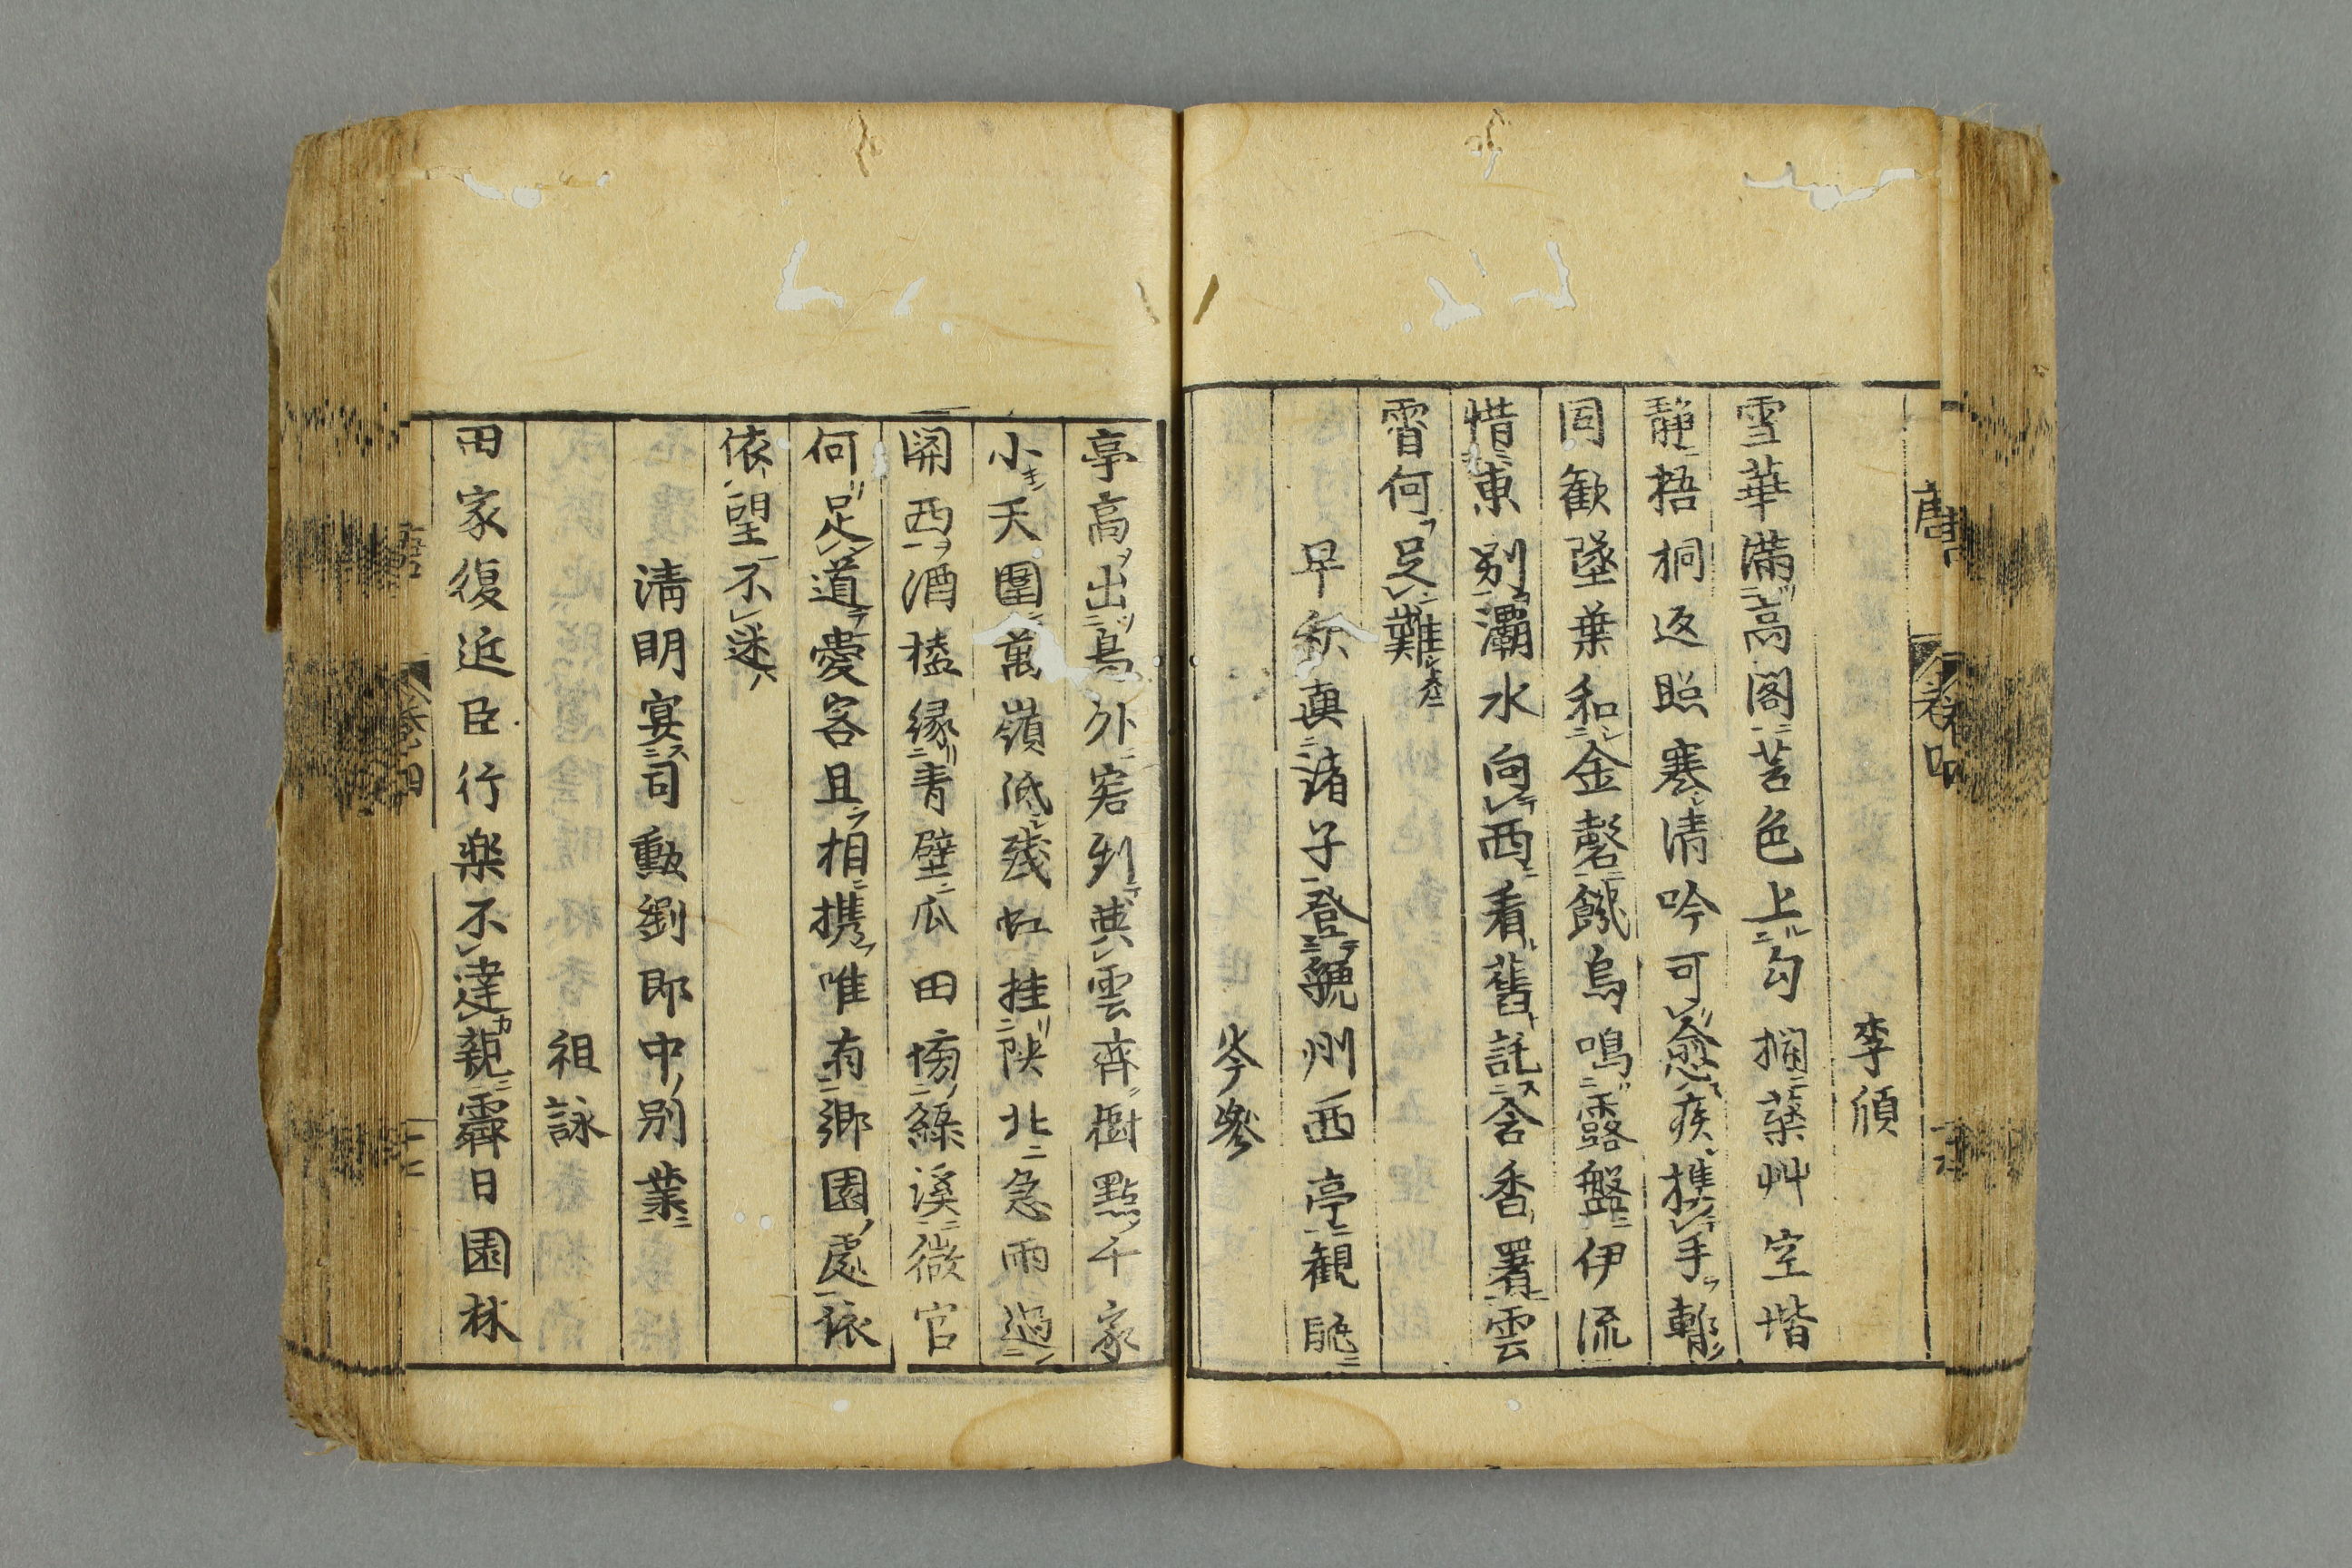 李頎
雪華滿高閣苔色上勾欄藥艸空堦
靜梧桐返照寒清吟可愈疾携手暫
同歡墜葉和金磬饑烏鳴露盤伊流
惜東别灞水向西看舊託含香署雲
霄何足難
早秋與諸子登虢州西亭觀眺
岑參
亭高出鳥外客到與雲齊樹點千家
小天圍萬嶺低殘虹挂陝北急雨過
関西酒榼縁青壁瓜田傍緑溪微官
何足道愛客且相携唯有鄉園處依
依望不迷
清明宴司勳劉郎中别業
祖詠
田家復近臣行樂不違親霽日園林